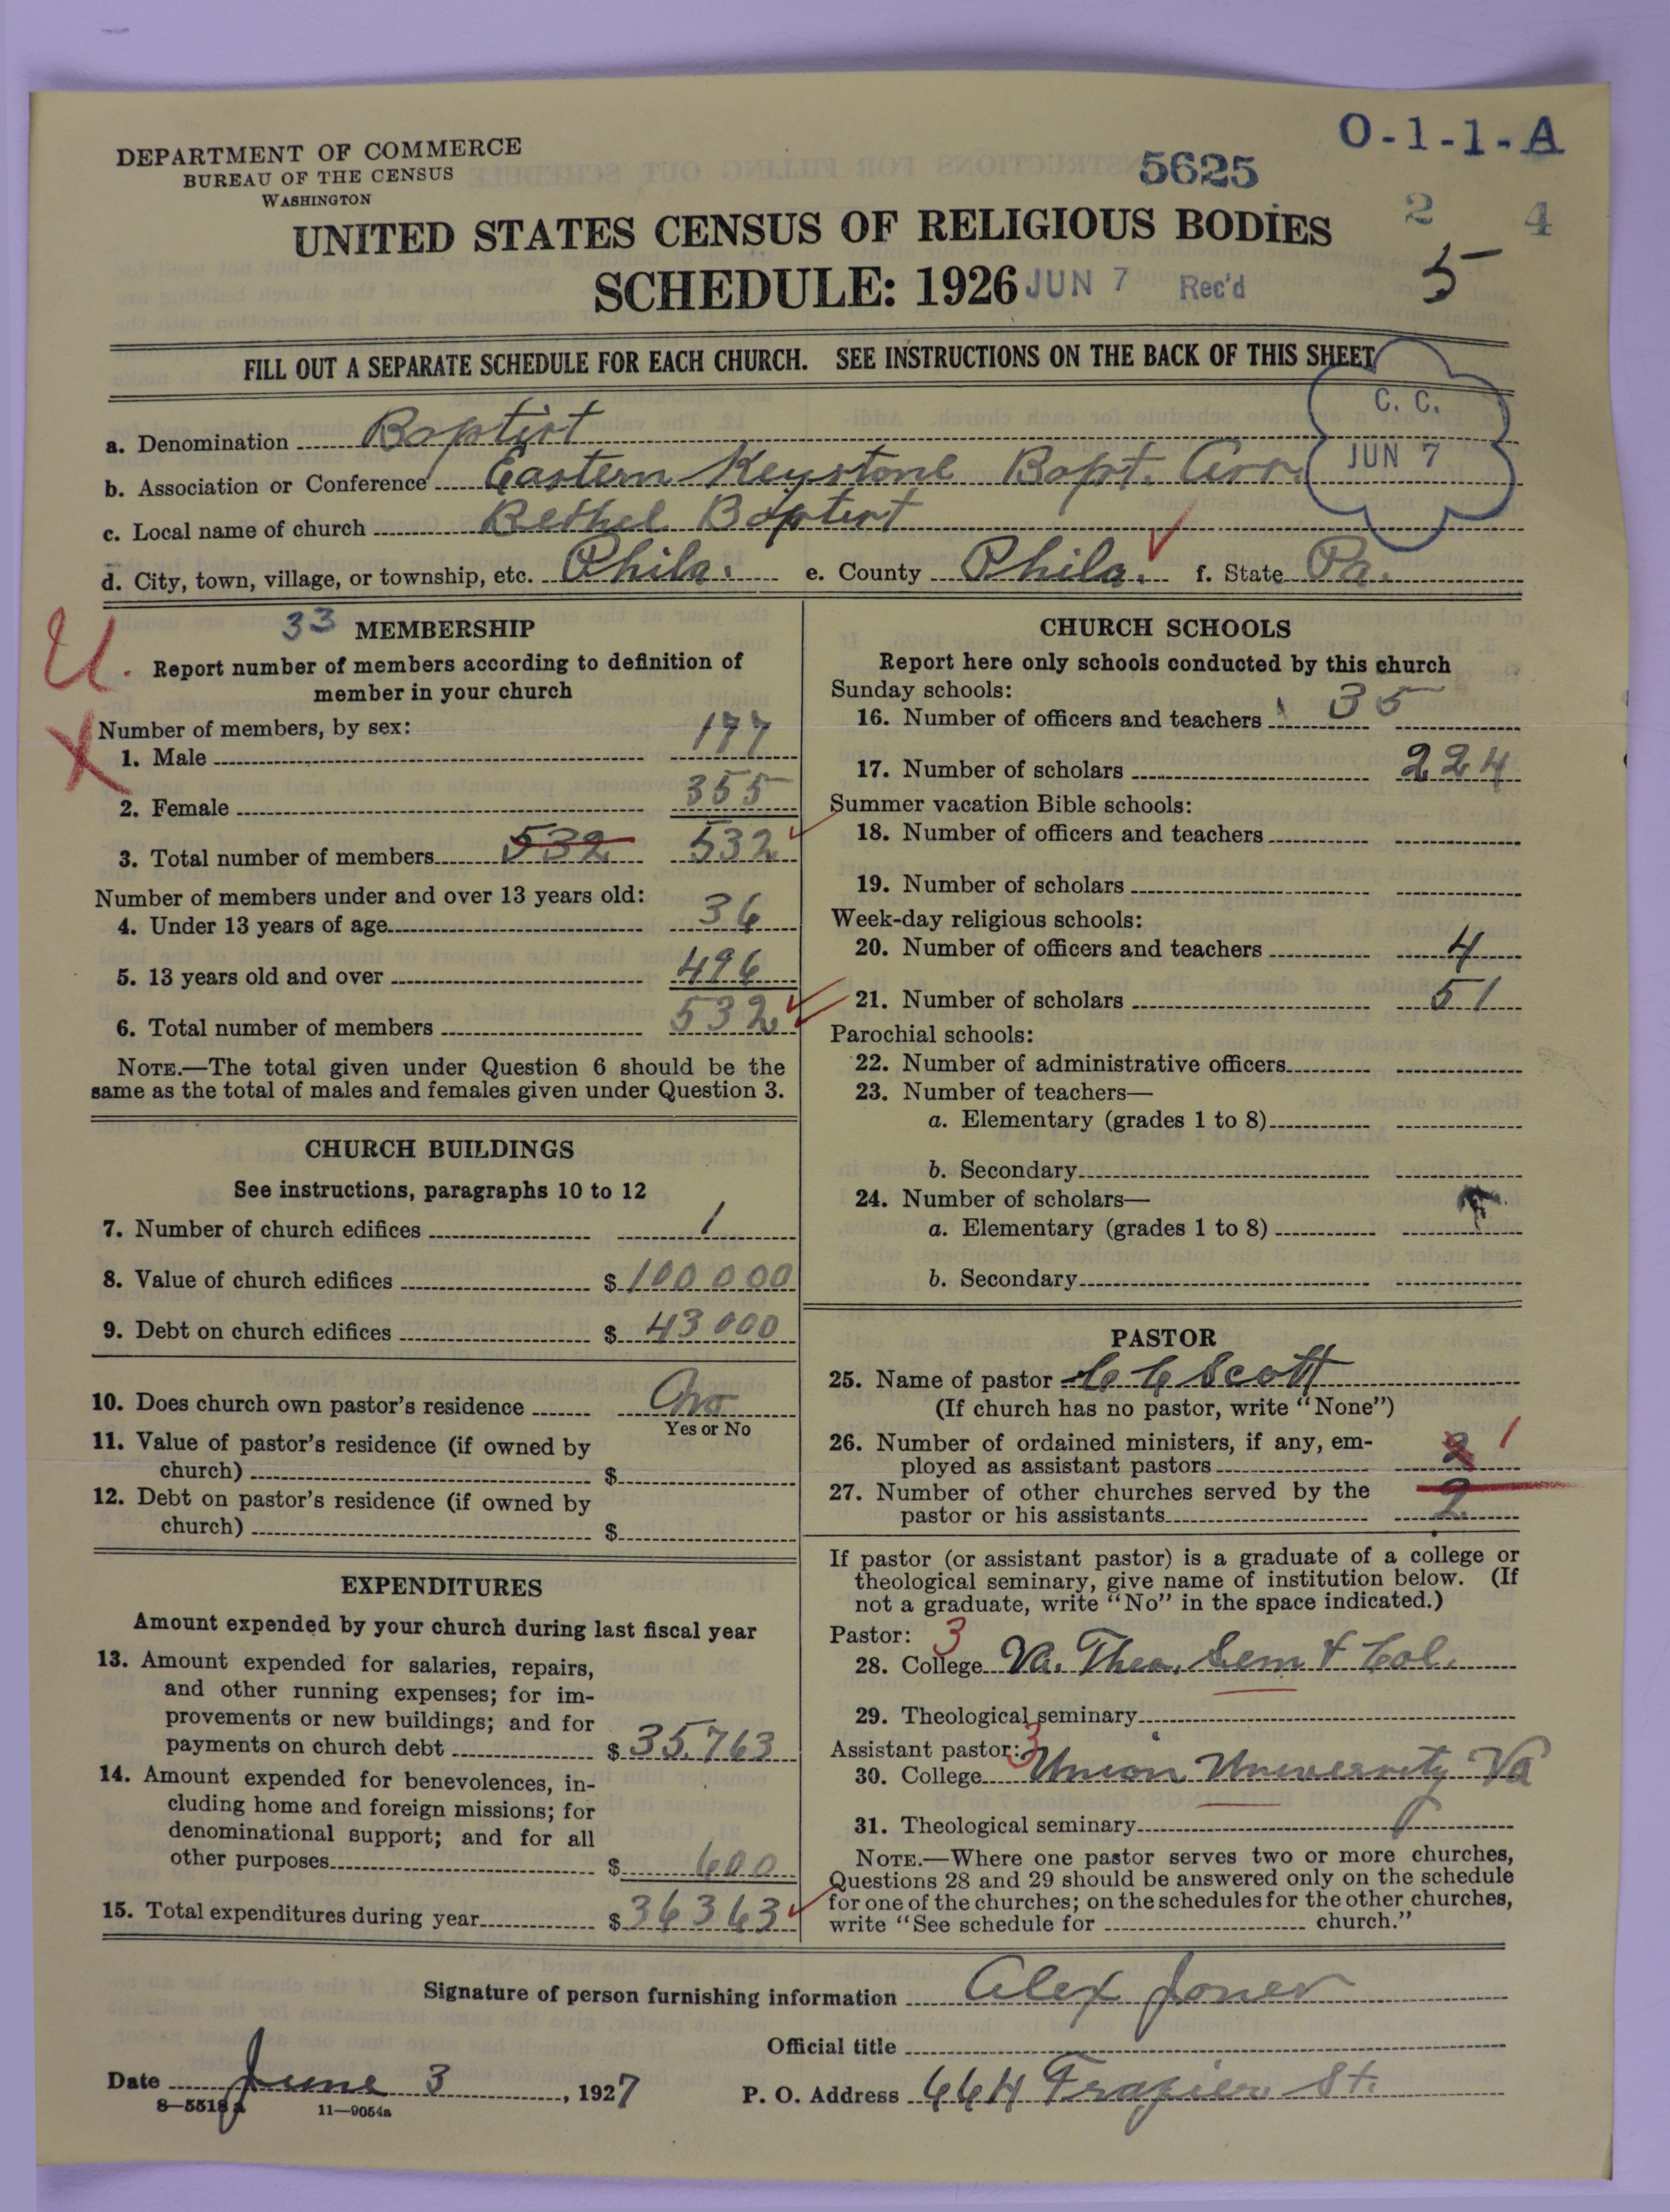 DEPARTMENT OF COMMERCE
BUREAU OF THE CENSUS
WASHINGTON
O-1-1-A
5625
2 4
UNITED STATES CENSUS OF RELIGIOUS BODIES
SCHEDULE: 1926 JUN 7 Rec'd 5
FILL OUT A SEPARATE SCHEDULE FOR EACH CHURCH. SEE INSTRUCTIONS ON THE BACK OF THIS SHEET
C. C.
JUN 7
a. Denomination Baptist
b. Association or Conference Eastern Keystone Bapt. Ass.
c. Local name of church Bethel Baptist
d. City, town, village, or township, etc. Phila. e. County Phila. f. State Pa.
U.
X
33 MEMBERSHIP
Report number of members according to definition of
member in your church
Number of members, by sex:
1. Male 177
2. Female 355
3. Total number of members 532 532
Number of members under and over 13 years old:
4. Under 13 years of age 36
5. 13 years old and over 496
6. Total number of members 532
NOTE.—The total given under Question 6 should be the
same as the total of males and females given under Question 3.
CHURCH BUILDINGS
See instructions, paragraphs 10 to 12
7. Number of church edifices 1
8. Value of church edifices $ 100000
9. Debt on church edifices $ 43000
10. Does church own pastor's residence No
Yes or No
11. Value of pastor's residence (if owned by
church) $
12. Debt on pastor's residence (if owned by
church) $
EXPENDITURES
Amount expended by your church during last fiscal year
13. Amount expended for salaries, repairs,
and other running expenses; for im-
provements or new buildings; and for
payments on church debt $ 35,763
14. Amount expended for benevolences, in-
cluding home and foreign missions; for
denominational support; and for all
other purposes $ 600
15. Total expenditures during year $ 36363
CHURCH SCHOOLS
Report here only schools conducted by this church
Sunday schools:
16. Number of officers and teachers 35
17. Number of scholars 224
Summer vacation Bible schools:
18. Number of officers and teachers
19. Number of scholars
Week-day religious schools:
20. Number of officers and teachers 4
21. Number of scholars 51
Parochial schools:
22. Number of administrative officers
23. Number of teachers—
a. Elementary (grades 1 to 8)
b. Secondary
24. Number of scholars—
a. Elementary (grades 1 to 8)
b. Secondary
PASTOR
25. Name of pastor C C Scott
(If church has no pastor, write "None")
26. Number of ordained ministers, if any, em-
ployed as assistant pastors 2 1
27. Number of other churches served by the
pastor or his assistants 2
If pastor (or assistant pastor) is a graduate of a college or
theological seminary, give name of institution below. (If
not a graduate, write "No" in the space indicated.)
Pastor: 3
28. College Va. Theo. Sem & Col.
29. Theological seminary
Assistant pastor: 3
30. College Union University Va
31. Theological seminary
NOTE.—Where one pastor serves two or more churches,
Questions 28 and 29 should be answered only on the schedule
for one of the churches; on the schedules for the other churches,
write "See schedule for church."
Signature of person furnishing information Alex Jones
Official title
Date June 3, 1927 P. O. Address 664 Frazier St.
8—5518a 11—9054a